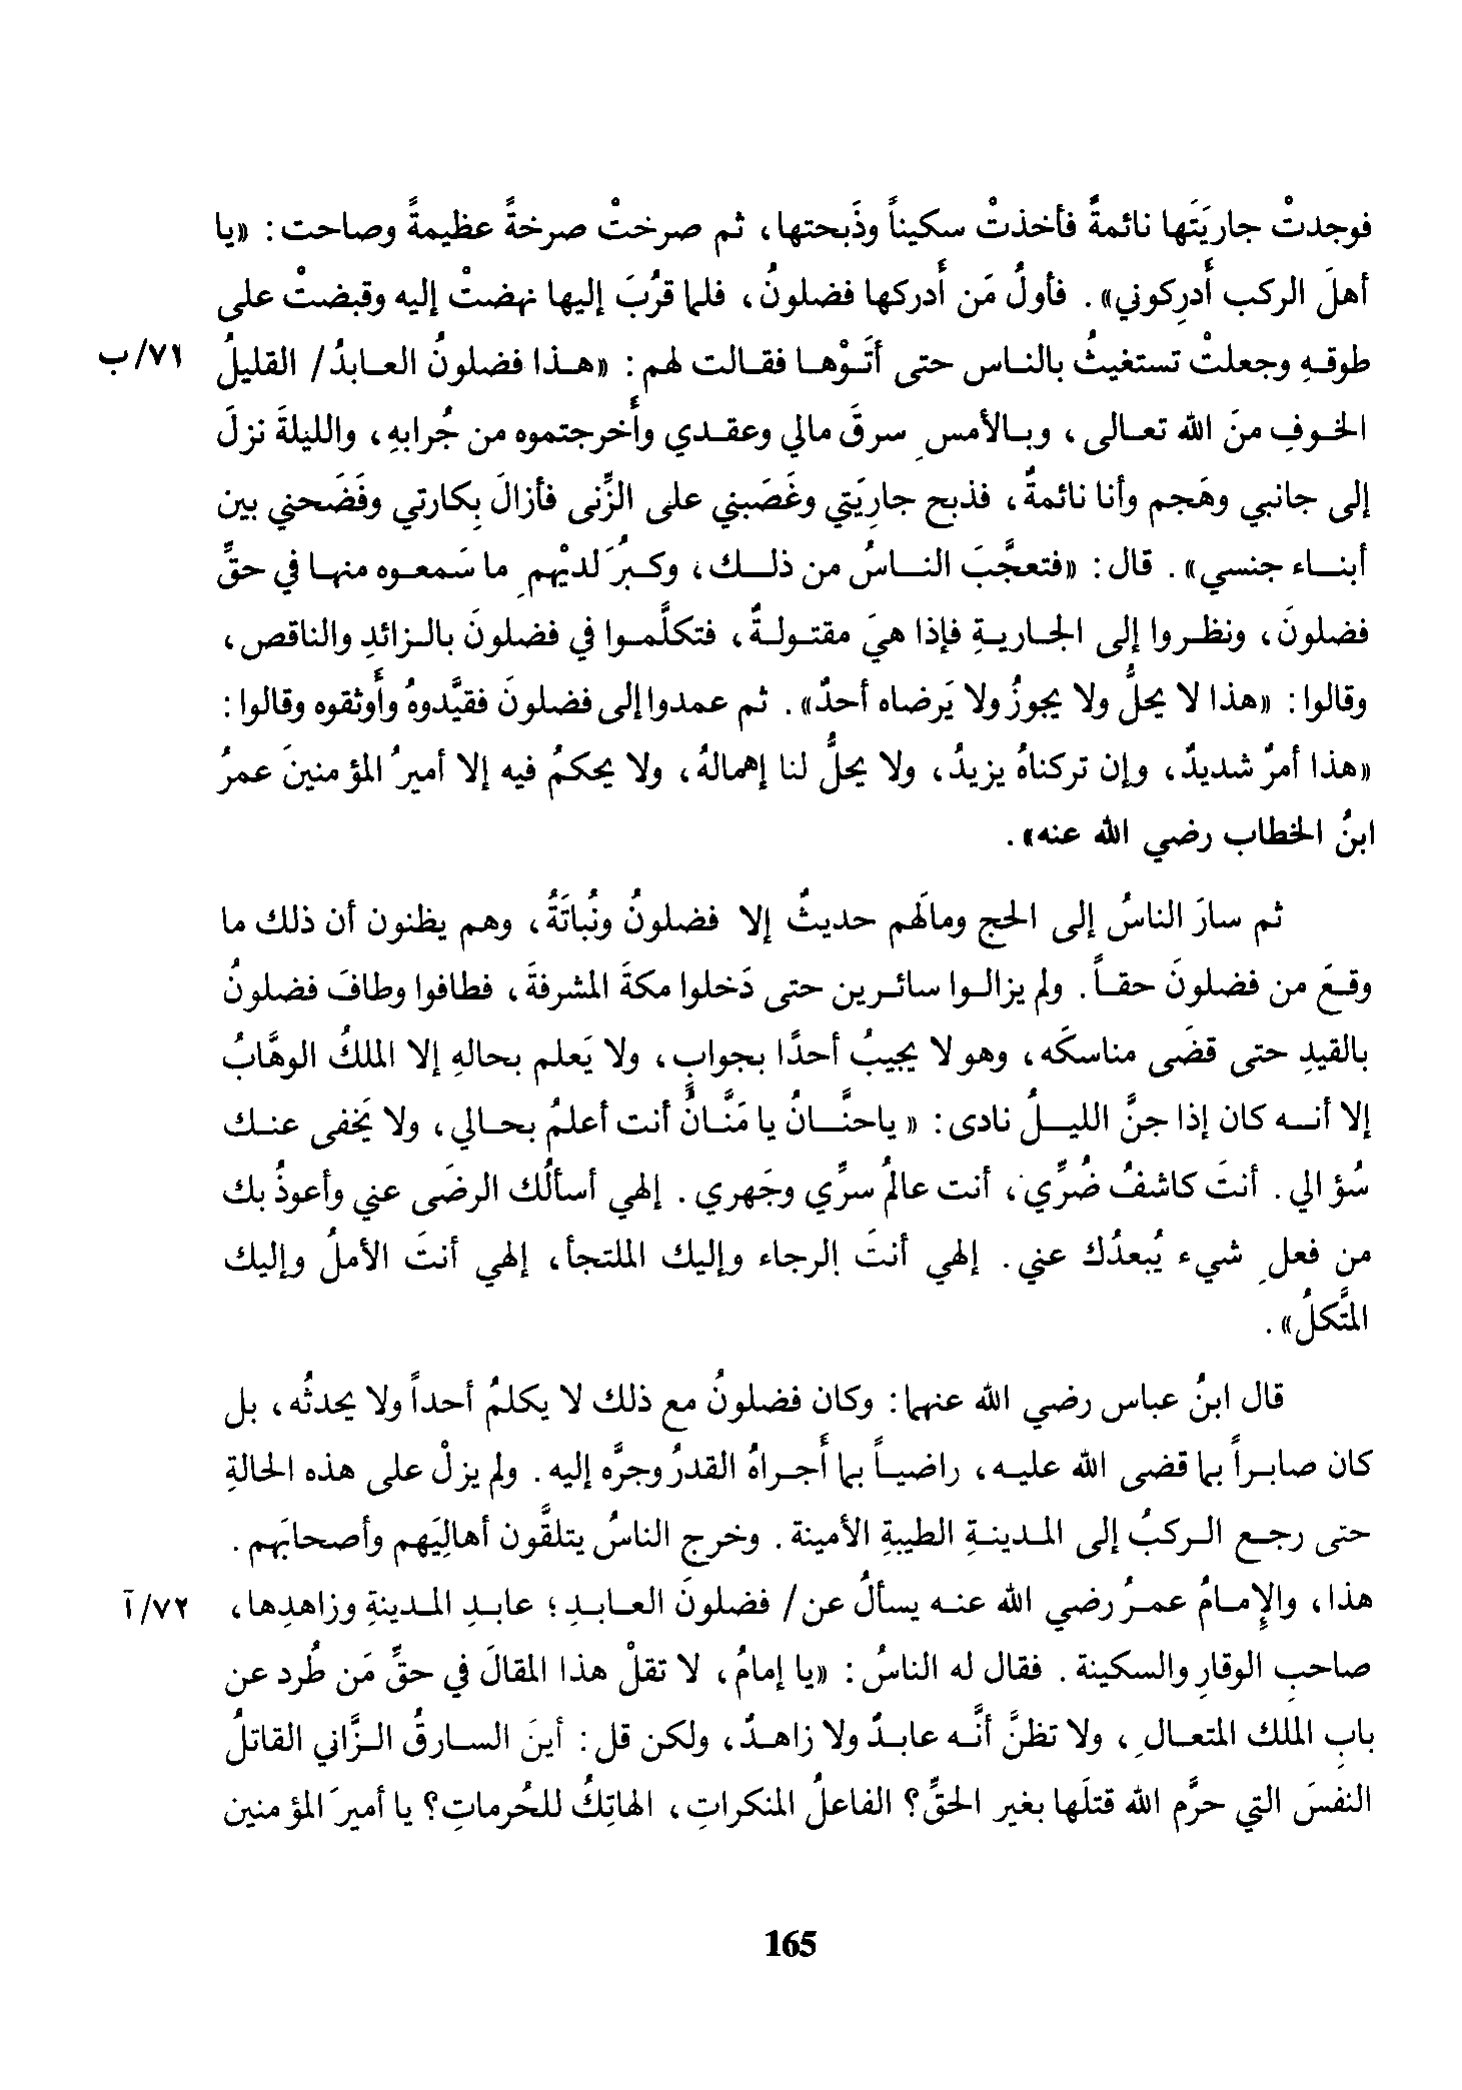 فوجدتْ جاريَتَها نائمةً فأخذتْ سكيناً وذَبحتها، ثم صرختْ صرخةً عظيمةً وصاحت: «يا
أهلَ الركب أَدرِكوني». فأولُ مَن أَدركها فضلونُ، فلما قرُبَ إليها نهضتْ إليه وقبضتْ على
طوقـهِ وجعلتْ تستغيثُ بالنـاس حتى أتَـوْهـا فقـالت لهم: «هـذا فضلونُ العـابدُ/ القليلُ
٧١/ب
الخـوفِ منَ الله تعـالى، وبـالأمسِ سرقَ مالي وعقـدي وأَخرجتموه من جُرابهِ، والليلةَ نزلَ
إلى جانبي وهَجم وأنا نائمةٌ، فذبح جاريَتي وغَصَبني على الزِّنى فأزالَ بِكارتي وفَضَحني بين
أبنـاء جنسي». قال: «فتعجَّبَ النـاسُ من ذلـك، وكـبُرَ لديْهمِ ما سَمعـوه منهـا في حقِّ
فضلونَ، ونظـروا إلى الجـاريـةِ فإذا هيَ مقتـولـةٌ، فتكلَّمـوا في فضلونَ بالـزائدِ والناقص،
وقالوا: «هذا لا يحلُّ ولا يجوزُ ولا يَرضاه أحدٌ». ثم عمدوا إلى فضلونَ فقيَّدوهُ وأَوثقوه وقالوا:
«هذا أمرٌ شديدٌ، وإن تركناهُ يزيدُ، ولا يحلُّ لنا إهمالهُ، ولا يحكمُ فيه إلا أميرُ المؤمنينَ عمرُ
ابنُ الخطاب رضي الله عنه».
ثم سارَ الناسُ إلى الحج ومالَهم حديثٌ إلا فضلونُ ونُباتَةُ، وهم يظنون أن ذلك ما
وقـعَ من فضلونَ حقـاً. ولم يزالـوا سائـرين حتى دَخلوا مكةَ المشرفةَ، فطافوا وطافَ فضلونُ
بالقيدِ حتى قضَى مناسكَه، وهو لا يجيبُ أحدًا بجوابٍ، ولا يَعلم بحالهِ إلا الملكُ الوهَّابُ
إلا أنـه كان إذا جنَّ الليـلُ نادى: «ياحنَّـانُ يا مَنَّـانُ أنت أعلمُ بحـالي، ولا يَخفى عنـك
سُؤالي. أنتَ كاشفُ ضُرِّي، أنت عالمُ سرِّي وجَهري. إلهي أسألُك الرضَى عني وأعوذُ بك
من فعلِ شيء يُبعدُك عني. إلهي أنتَ الرجاء وإليك الملتجأ، إلهي أنتَ الأملُ وإليك
المتَّكلُ».
قال ابنُ عباس رضي الله عنهما: وكان فضلونُ مع ذلك لا يكلمُ أحداً ولا يحدثُه، بل
كان صابـراً بما قضى الله عليـه، راضيـاً بما أَجـراهُ القدرُ وجرَّه إليه. ولم يزلْ على هذه الحالةِ
حتى رجـع الـركبُ إلى المـدينـةِ الطيبةِ الأمينة. وخرج الناسُ يتلقَّون أهاليَهم وأصحابَهم.
هذا، والإمـامُ عمـرُ رضي الله عنـه يسألُ عن/ فضلونَ العـابـدِ؛ عابـدِ المـدينةِ وزاهدِها،
٧٢/آ
صاحبِ الوقارِ والسكينة. فقال له الناسُ: «يا إمامُ، لا تقلْ هذا المقالَ في حقِّ مَن طُرد عن
بابِ الملك المتعـالِ، ولا تظنَّ أنَّـه عابـدٌ ولا زاهـدٌ، ولكن قل: أينَ السـارقُ الـزَّاني القاتلُ
النفسَ التي حرَّم الله قتلَها بغير الحقِّ؟ الفاعلُ المنكراتِ، الهاتِكُ للحُرماتِ؟ يا أميرَ المؤمنين
165